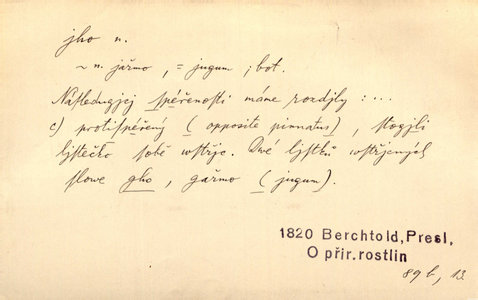 jho n.
~ n. jařmo, = jugum ; bot.
Následugjcj spéřenosti máme rozdjly : ...
c) protispéřený (opposite pinnatus), stogjli
ljstečko sobě wstřjc. Dwé ljstků wstřjcných
slowe gho, gařmo (jugum).
1820 Berchtold, Presl,
O přir. rostlin
89 b, 13